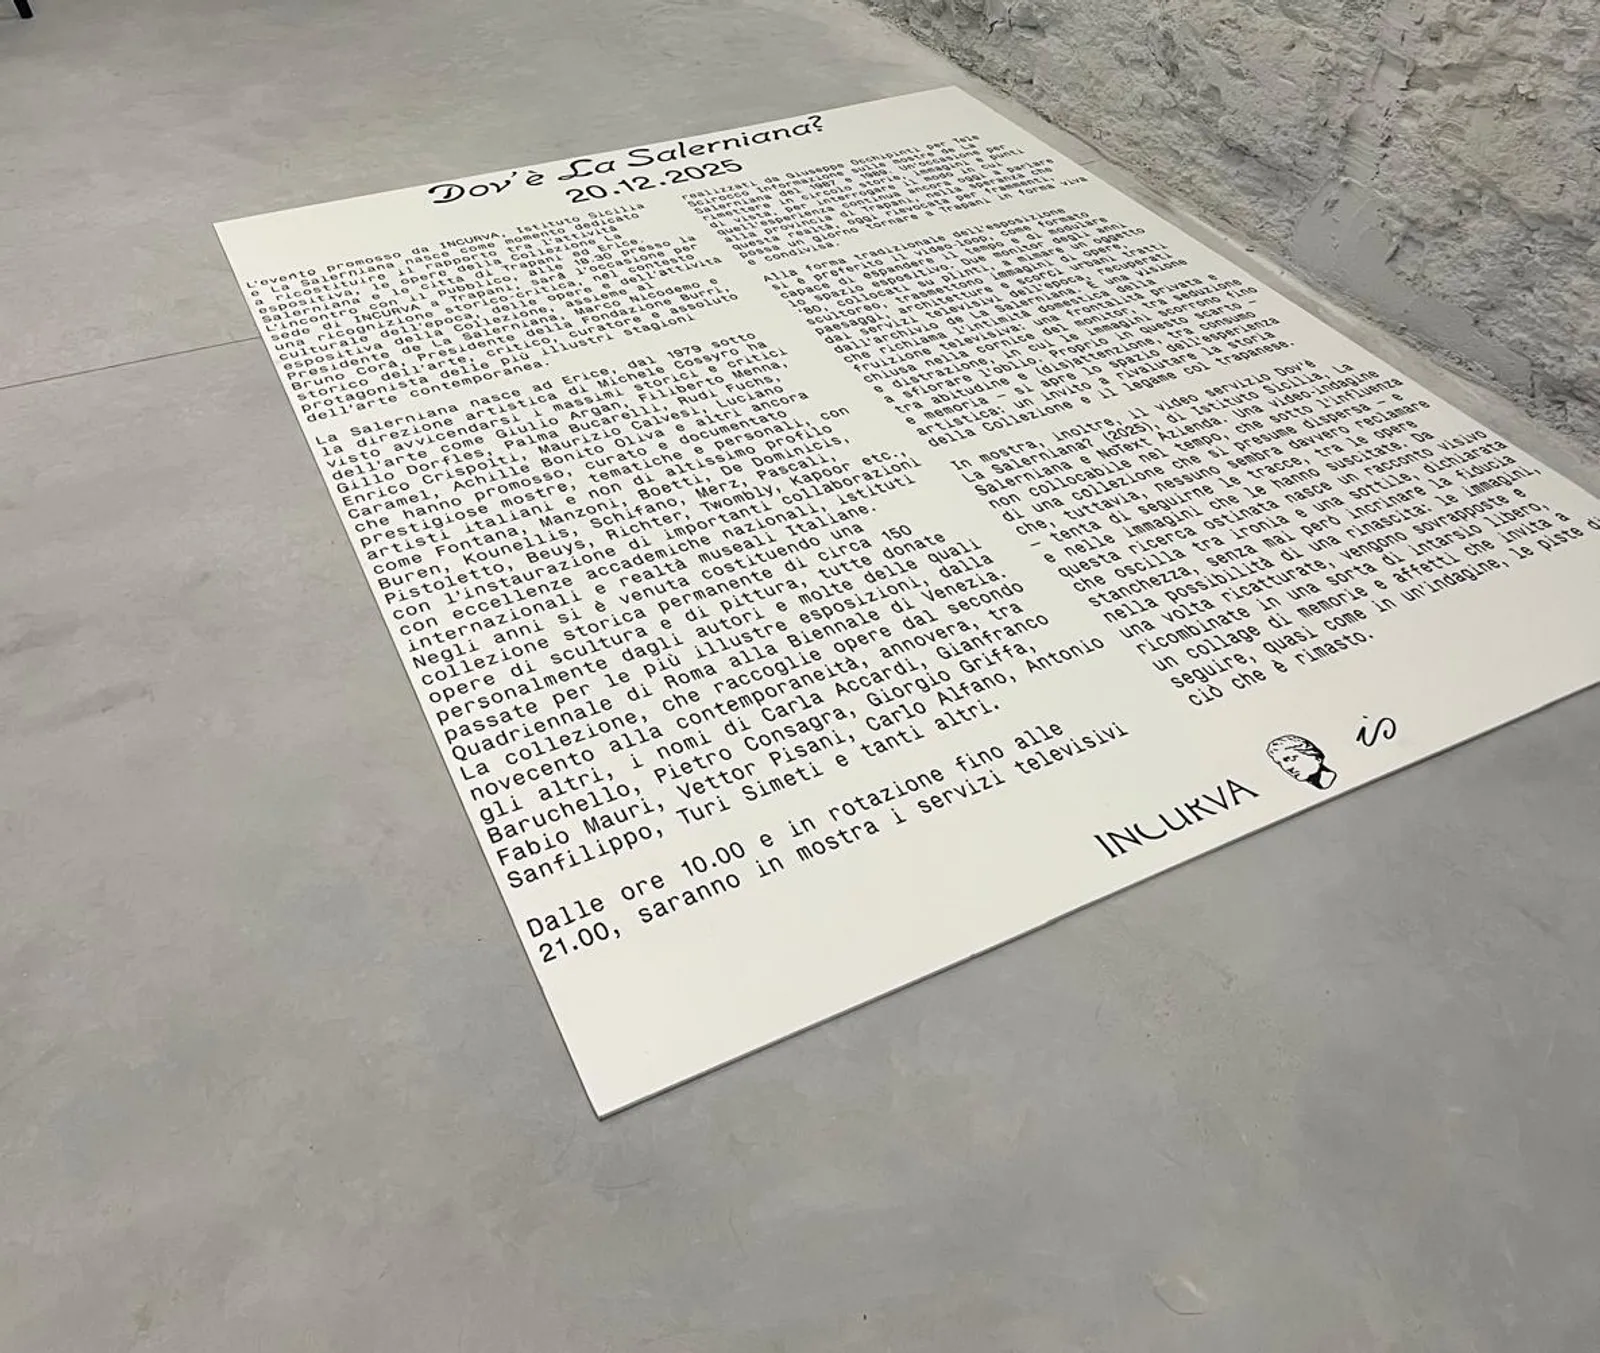 Dov'è La Salerniana?
20.12.2025
L'evento promosso da INCURVA, Istituto Sicilia
e La Salerniana nasce come momento dedicato
a ricostituire il rapporto tra l'attività
espositiva, le opere della Collezione La
Salerniana e le città di Trapani ed Erice.
L'incontro con il pubblico, alle 18.30 presso la
sede di INCURVA a Trapani, sarà l'occasione per
una ricognizione storico-critica, nel contesto
culturale dell'epoca, delle opere e dell'attività
espositiva della Collezione, assieme al
presidente de La Salerniana, Marco Nicodemo e
Bruno Corà, Presidente della Fondazione Burri,
storico dell'arte, critico, curatore e assoluto
protagonista delle più illustri stagioni
dell'arte contemporanea.
La Salerniana nasce ad Erice, dal 1979 sotto
la direzione artistica di Michele Cossyro ha
visto avvicendarsi i massimi storici e critici
dell'arte come Giulio Argan, Filiberto Menna,
Gillo Dorfles, Palma Bucarelli, Rudi Fuchs,
Enrico Crispolti, Maurizio Calvesi, Luciano
Caramel, Achille Bonito Oliva e altri ancora
che hanno promosso, curato e documentato
prestigiose mostre, tematiche e personali, con
artisti italiani e non di altissimo profilo
come Fontana, Manzoni, Boetti, De Dominicis,
Buren, Kounellis, Schifano, Merz, Pascali,
Pistoletto, Beuys, Richter, Twombly, Kapoor etc.,
con l'instaurazione di importanti collaborazioni
con eccellenze accademiche nazionali, istituti
internazionali e realtà museali Italiane.
Negli anni si è venuta costituendo una
collezione storica permanente di circa 150
opere di scultura e di pittura, tutte donate
personalmente dagli autori e molte delle quali
passate per le più illustre esposizioni, dalla
Quadriennale di Roma alla Biennale di Venezia.
La collezione, che raccoglie opere dal secondo
novecento alla contemporaneità, annovera, tra
gli altri, i nomi di Carla Accardi, Gianfranco
Baruchello, Pietro Consagra, Giorgio Griffa,
Fabio Mauri, Vettor Pisani, Carlo Alfano, Antonio
Sanfilippo, Turi Simeti e tanti altri.
Dalle ore 10.00 e in rotazione fino alle
21.00, saranno in mostra i servizi televisivi
realizzati da Giuseppe Occhipinti per Tele
Scirocco Informazione sulle mostre de La
Salerniana del 1987 e 1989. Un'occasione per
rimettere in circolo storie, immagini e punti
di vista, per interrogare il modo in cui
quell'esperienza continua ancora oggi a parlare
alla provincia di Trapani, nella speranza che
questa realtà, oggi rievocata per frammenti,
possa un giorno tornare a Trapani in forma viva
e condivisa.
Alla forma tradizionale dell'esposizione
si è preferito il video-loop, come formato
capace di espandere il tempo e di modulare
lo spazio espositivo. Due monitor degli anni
'80, collocati su plinti, a mimare un oggetto
scultoreo, trasmettono immagini di opere,
paesaggi, architetture e scorci urbani tratti
dai servizi televisivi dell'epoca, recuperati
dall'archivio de La Salerniana. È una visione
che richiama l'intimità domestica della
fruizione televisiva: una frontalità privata e
chiusa nella cornice del monitor, tra seduzione
e distrazione, in cui le immagini scorrono fino
a sfiorare l'oblio. Proprio in questo scarto –
tra abitudine e (dis)attenzione, tra consumo
e memoria – si apre lo spazio dell'esperienza
artistica: un invito a rivalutare la storia
della Collezione e il legame col trapanese.
In mostra, inoltre, il video servizio Dov'è
La Salerniana? (2025), di Istituto Sicilia, La
Salerniana e NoText Azienda. Una video-indagine
non collocabile nel tempo, che sotto l'influenza
di una collezione che si presume dispersa – e
che, tuttavia, nessuno sembra davvero reclamare
– tenta di seguirne le tracce, tra le opere
e nelle immagini che le hanno suscitate. Da
questa ricerca ostinata nasce un racconto visivo
che oscilla tra ironia e una sottile, dichiarata
stanchezza, senza mai però incrinare la fiducia
nella possibilità di una rinascita: le immagini,
una volta ricatturate, vengono sovrapposte e
ricombinate in una sorta di intarsio libero,
un collage di memorie e affetti che invita a
seguire, quasi come in un'indagine, le piste di
ciò che è rimasto.
INCURVA
is